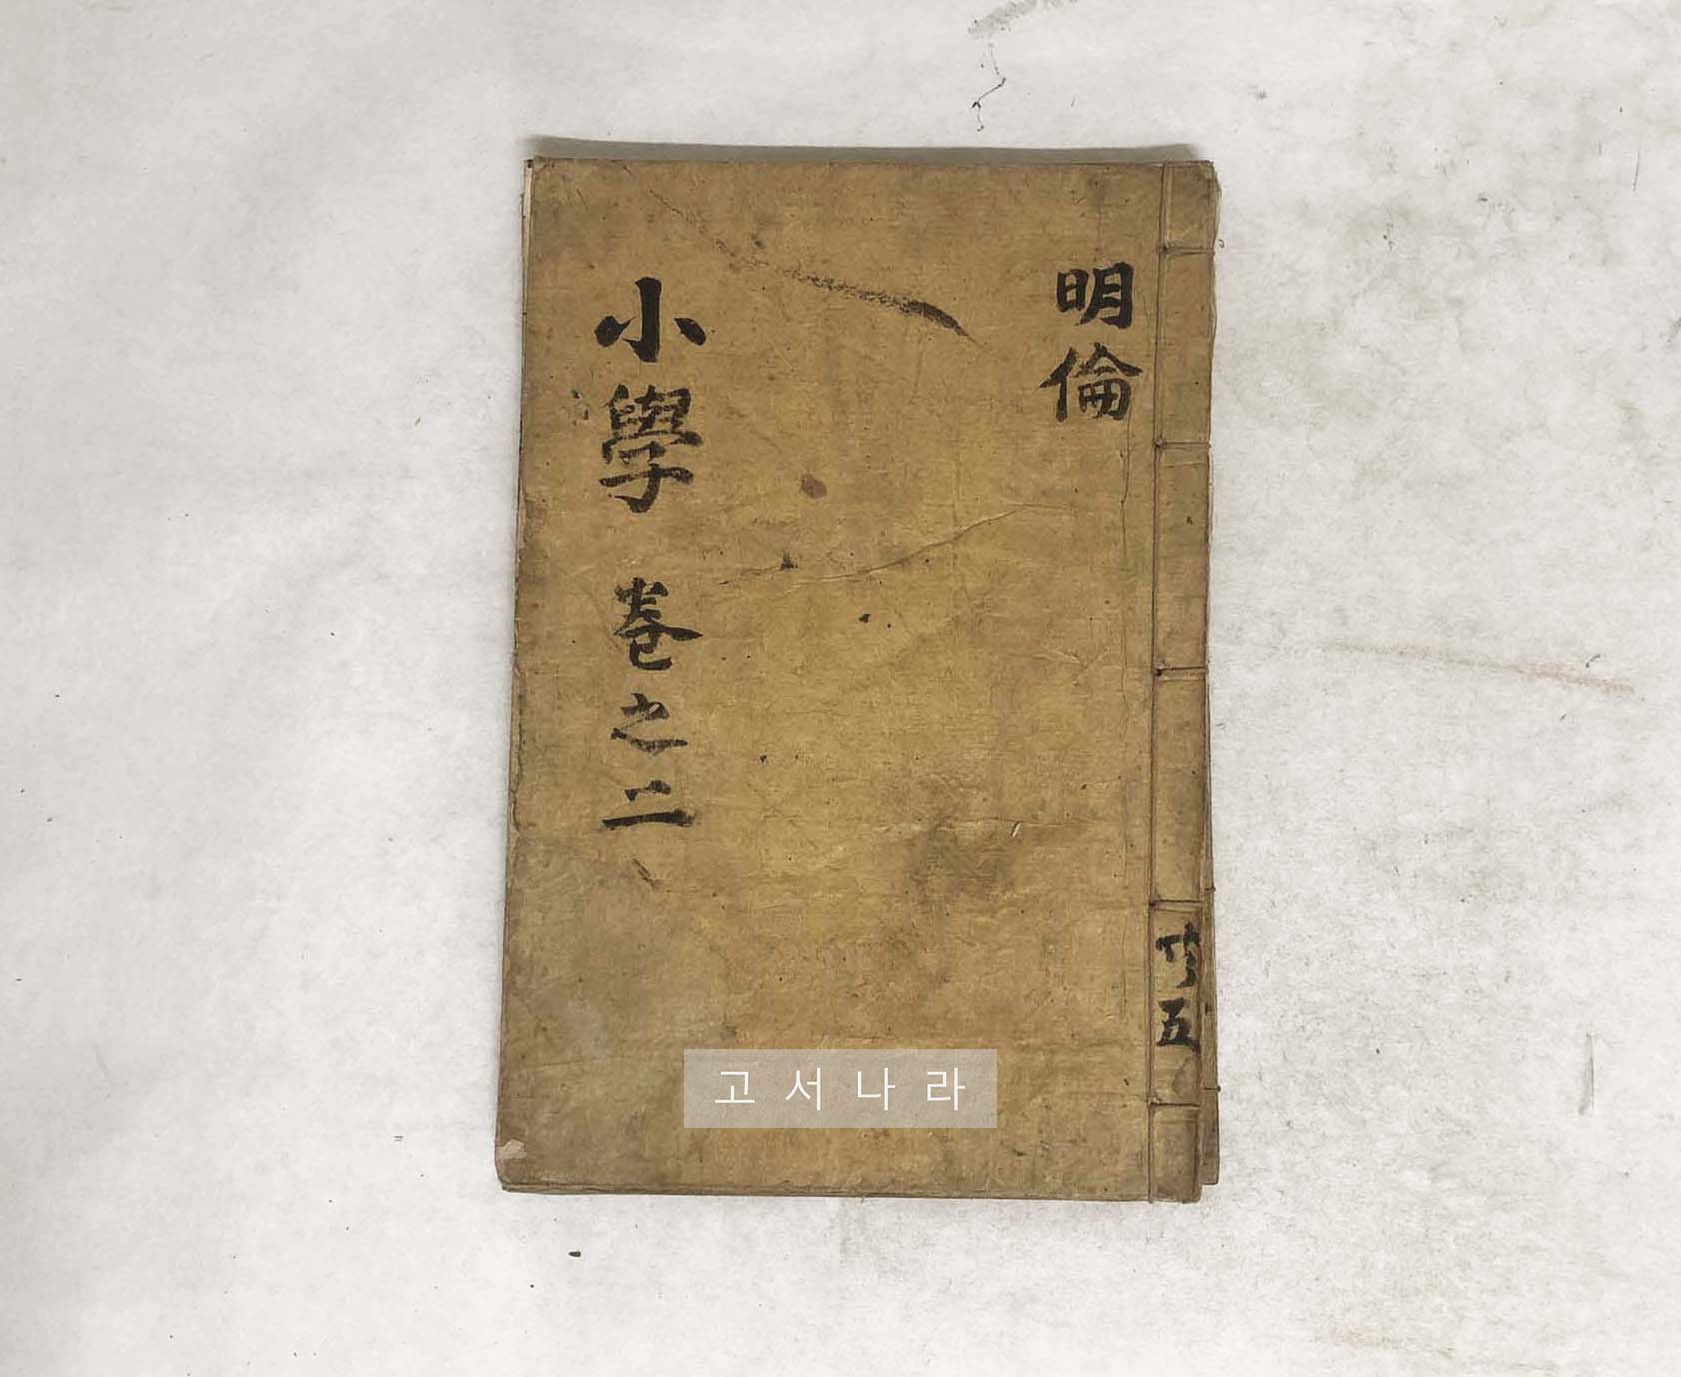 明倫
小學 卷之二
共五
고서나라